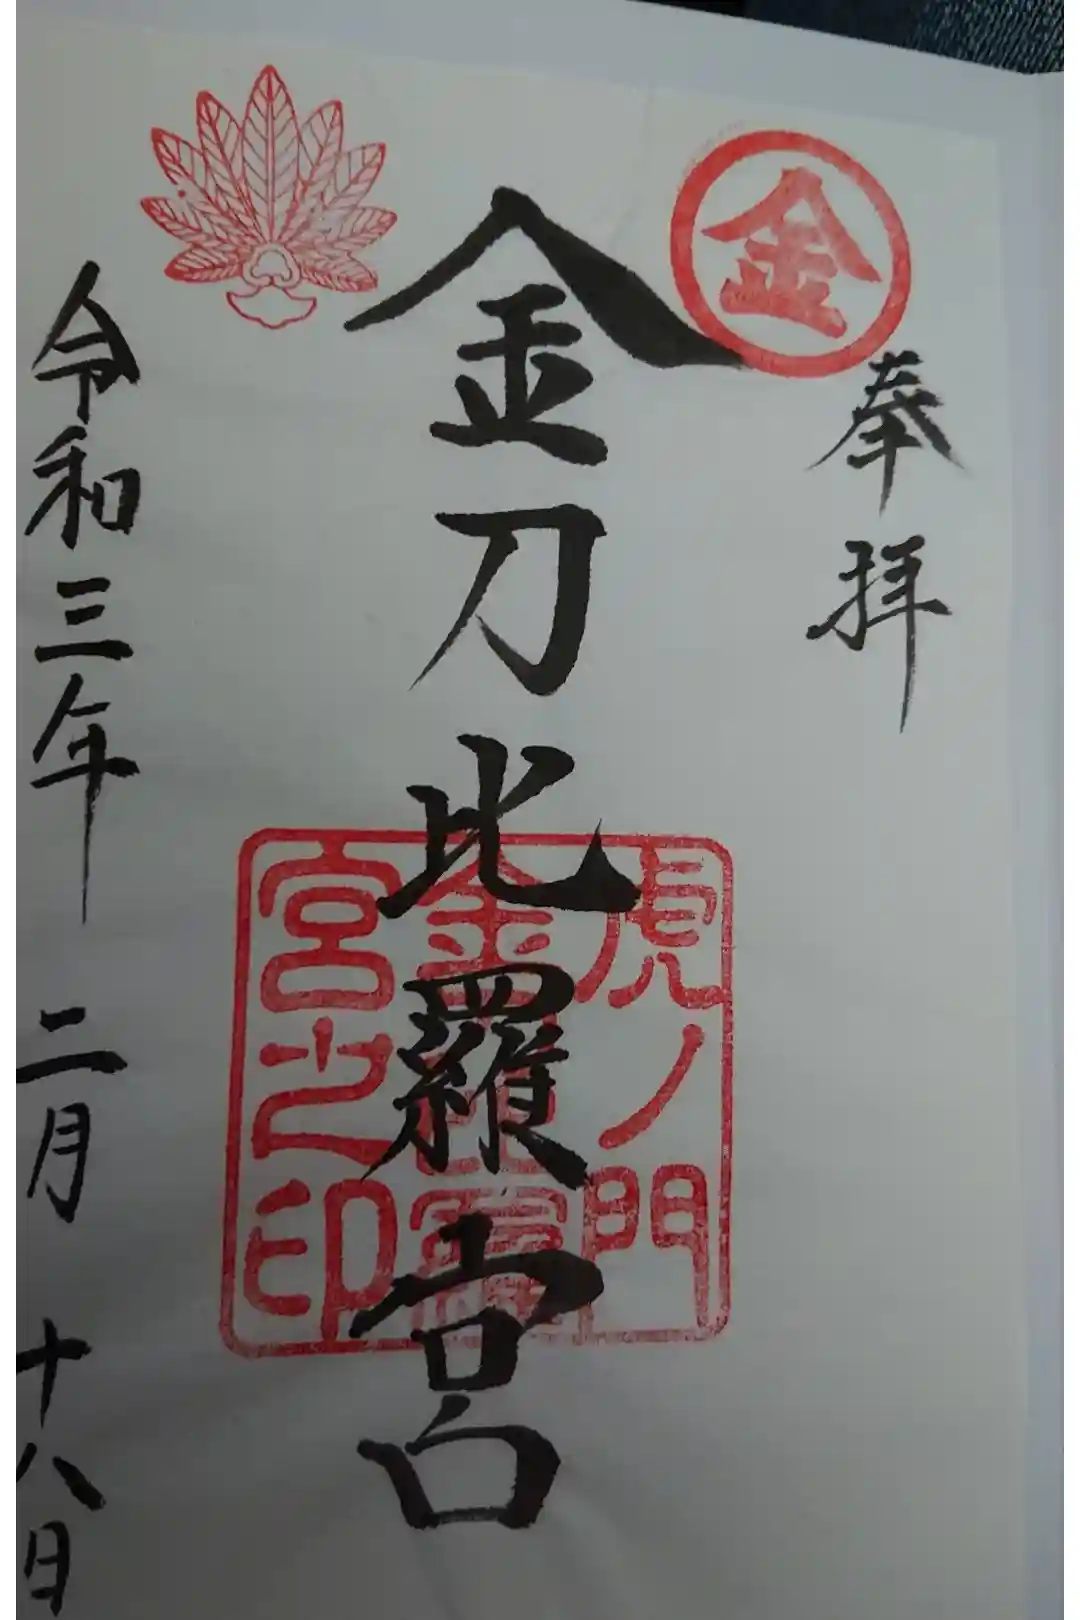 金
奉拝
金刀比羅宮
虎ノ門
金刀比羅
宮之印
令和三年 二月 十八日